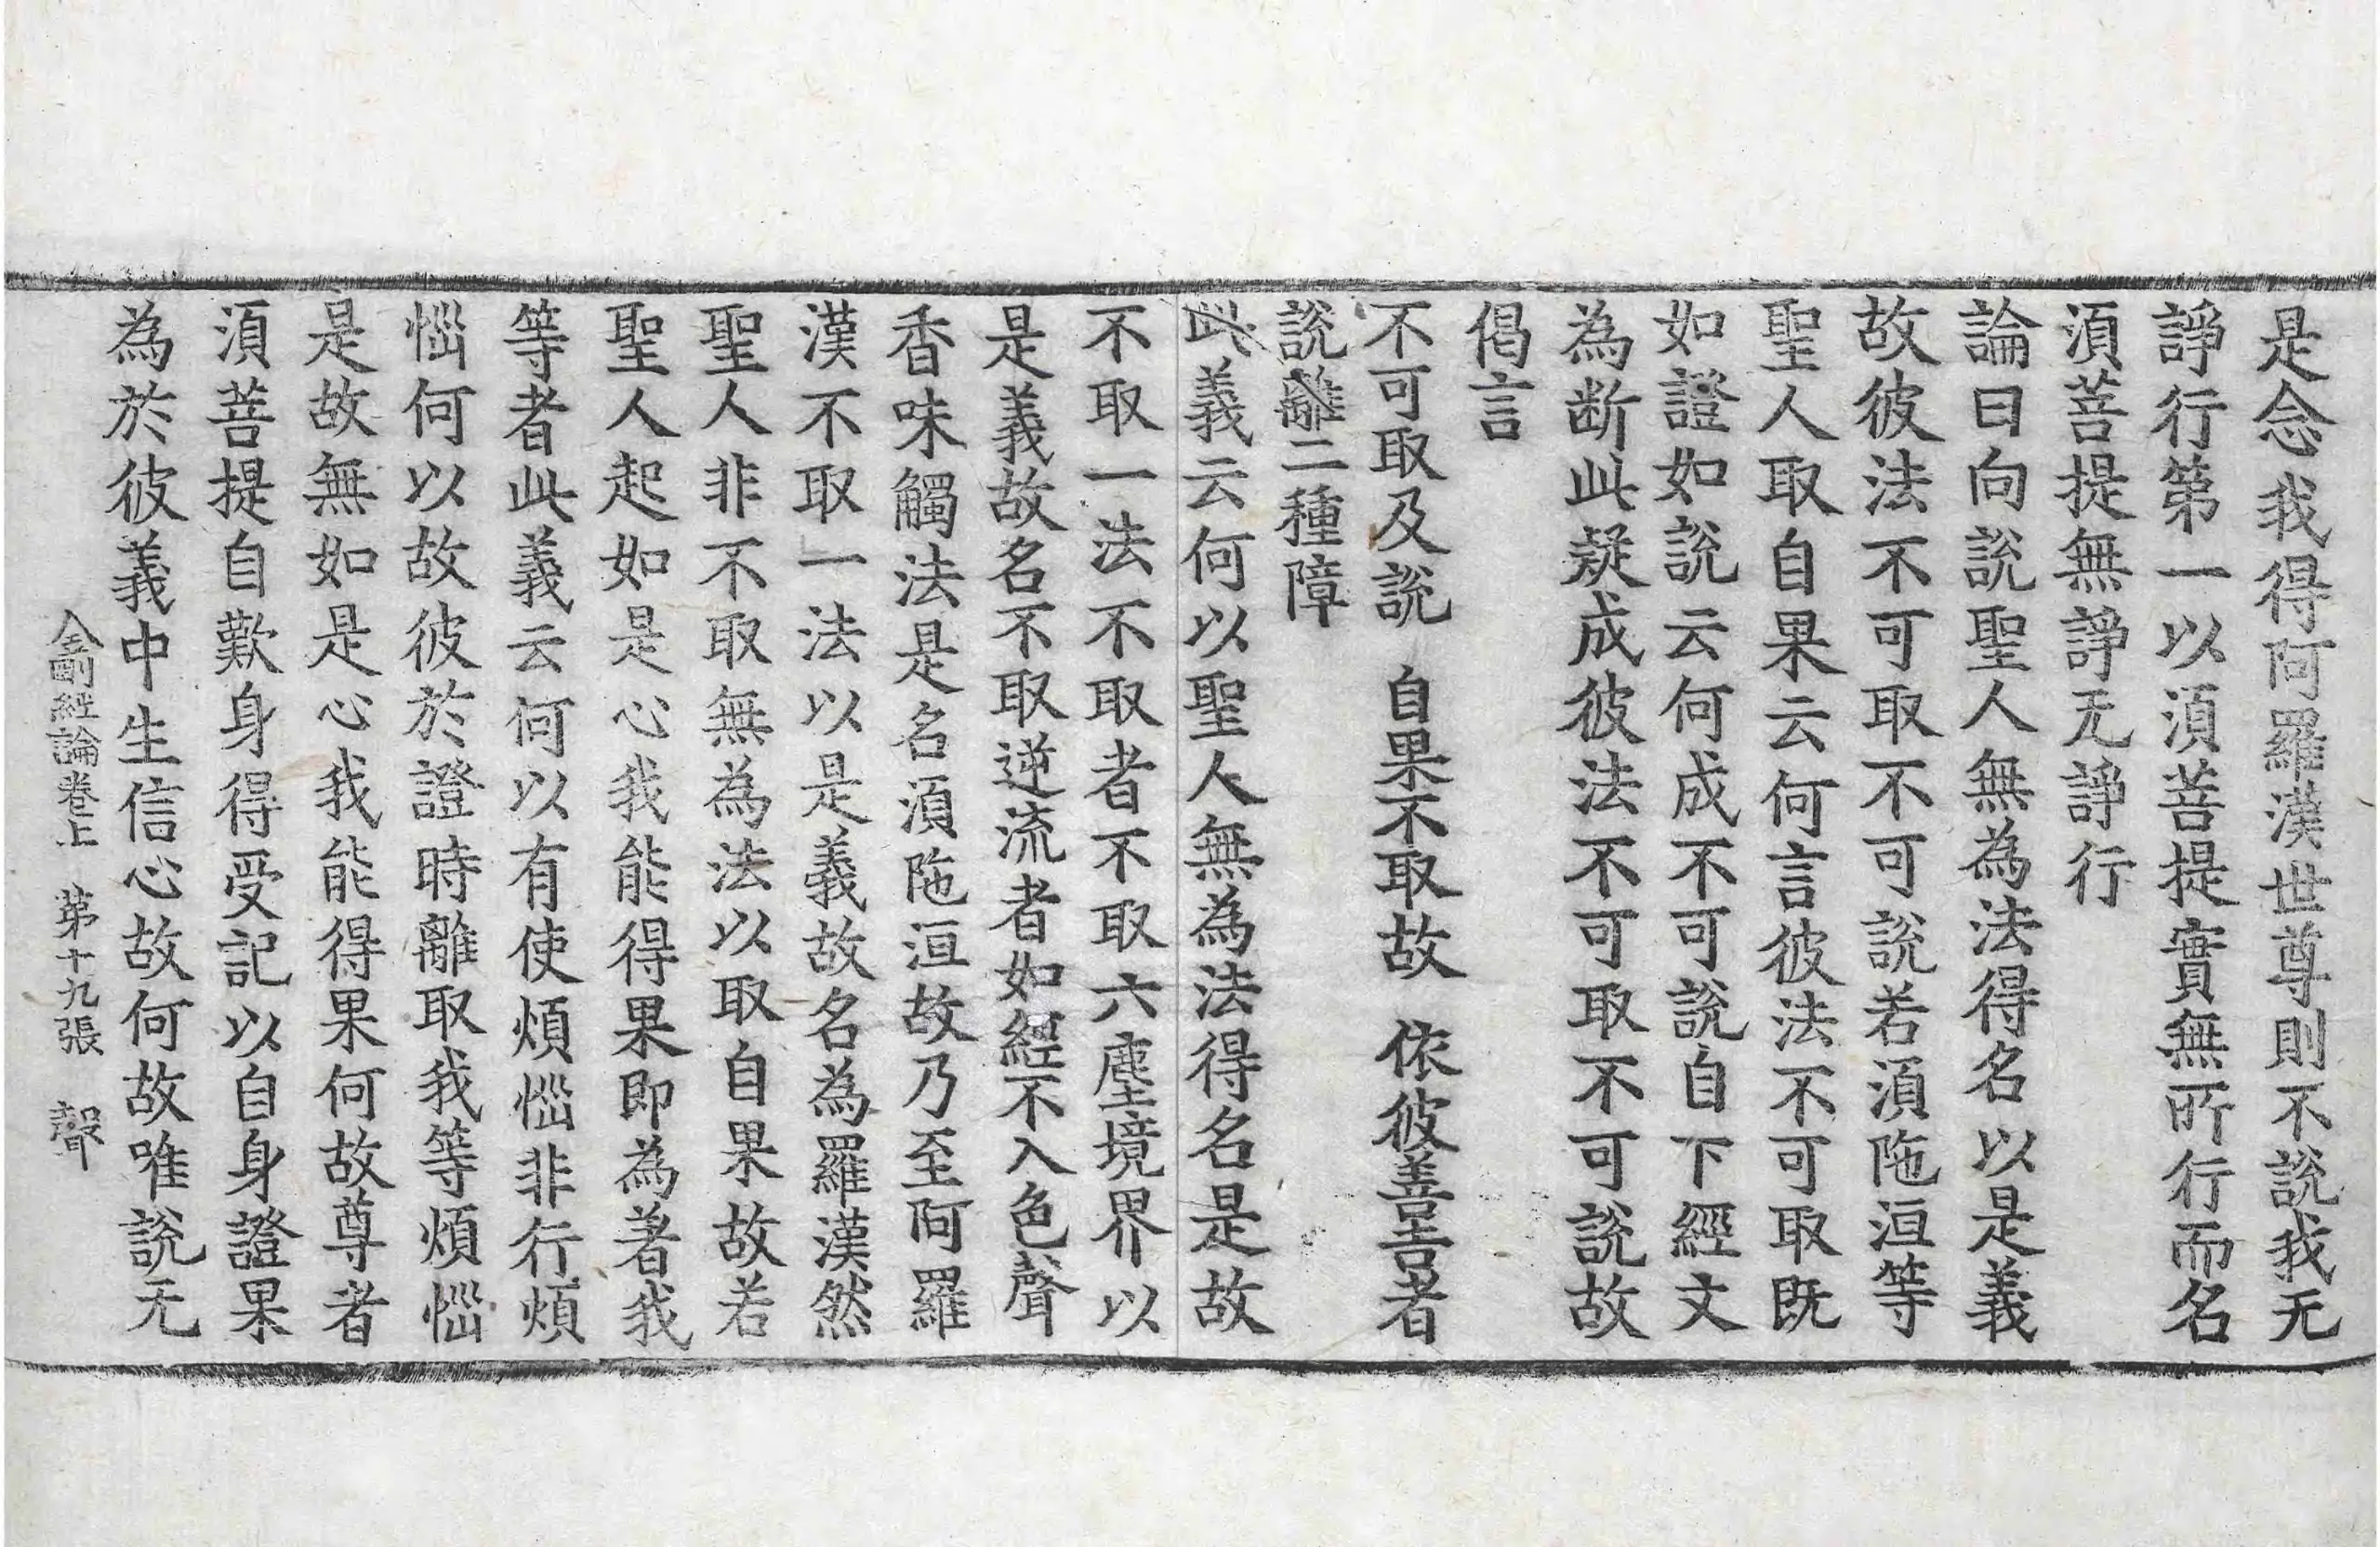 是念我得阿羅漢世尊則不說我无
諍行第一以須菩提實無所行而名
須菩提無諍无諍行
論曰向說聖人無為法得名以是義
故彼法不可取不可說若須陁洹等
聖人取自果云何言彼法不可取既
如證如說云何成不可說自下經文
為断此疑成彼法不可取不可說故
偈言
不可取及說　自果不取故　依彼善吉者
說離二種障
此義云何以聖人無為法得名是故
不取一法不取者不取六塵境界以
是義故名不取逆流者如經不入色聲
香味觸法是名須陁洹故乃至阿羅
漢不取一法以是義故名為羅漢然
聖人非不取無為法以取自果故若
聖人起如是心我能得果即為著我
等者此義云何以有使煩惱非行煩
惱何以故彼於證時離取我等煩惱
是故無如是心我能得果何故尊者
須菩提自歎身得受記以自身證果
為於彼義中生信心故何故唯說无
金剛經論卷上　第十九張　聲